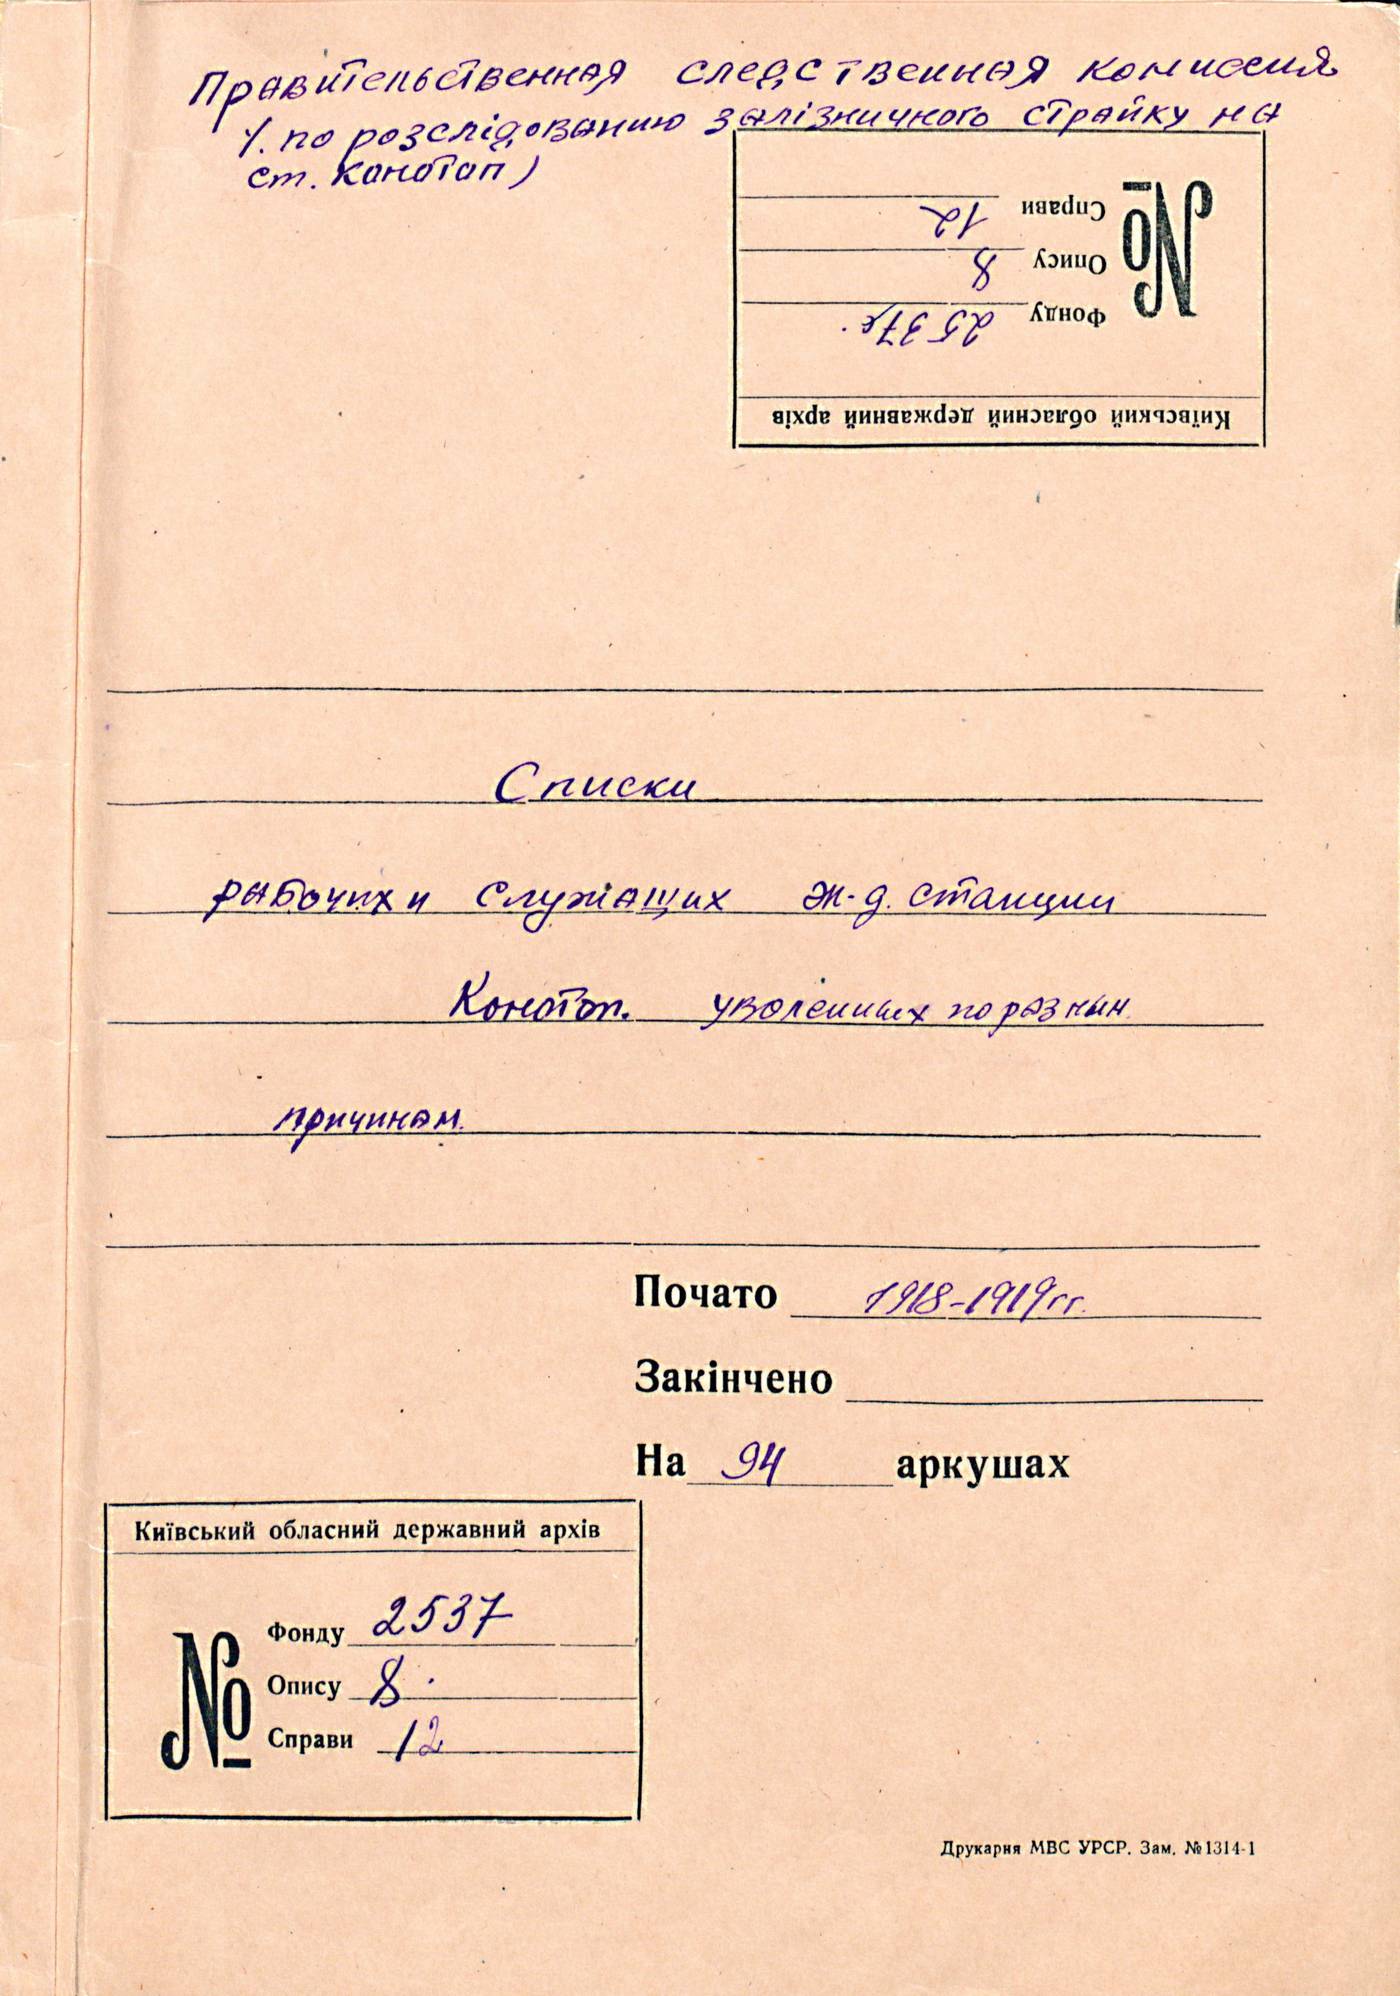 Правительственная следственная комиссия
(. по розслідованию залізничного страйку на
ст. Конотоп)
Київський обласний державний архів
№
Фонду 2537
Опису 8
Справи 12
Списки
рабочих и служащих ж-д. станции
Конотоп. уволенных по разным
причинам.
Почато 1918-1919 гг.
Закінчено
На 94 аркушах
Київський обласний державний архів
№
Фонду 2537
Опису 8.
Справи 12
Друкарня МВС УРСР. Зам. №1314-1